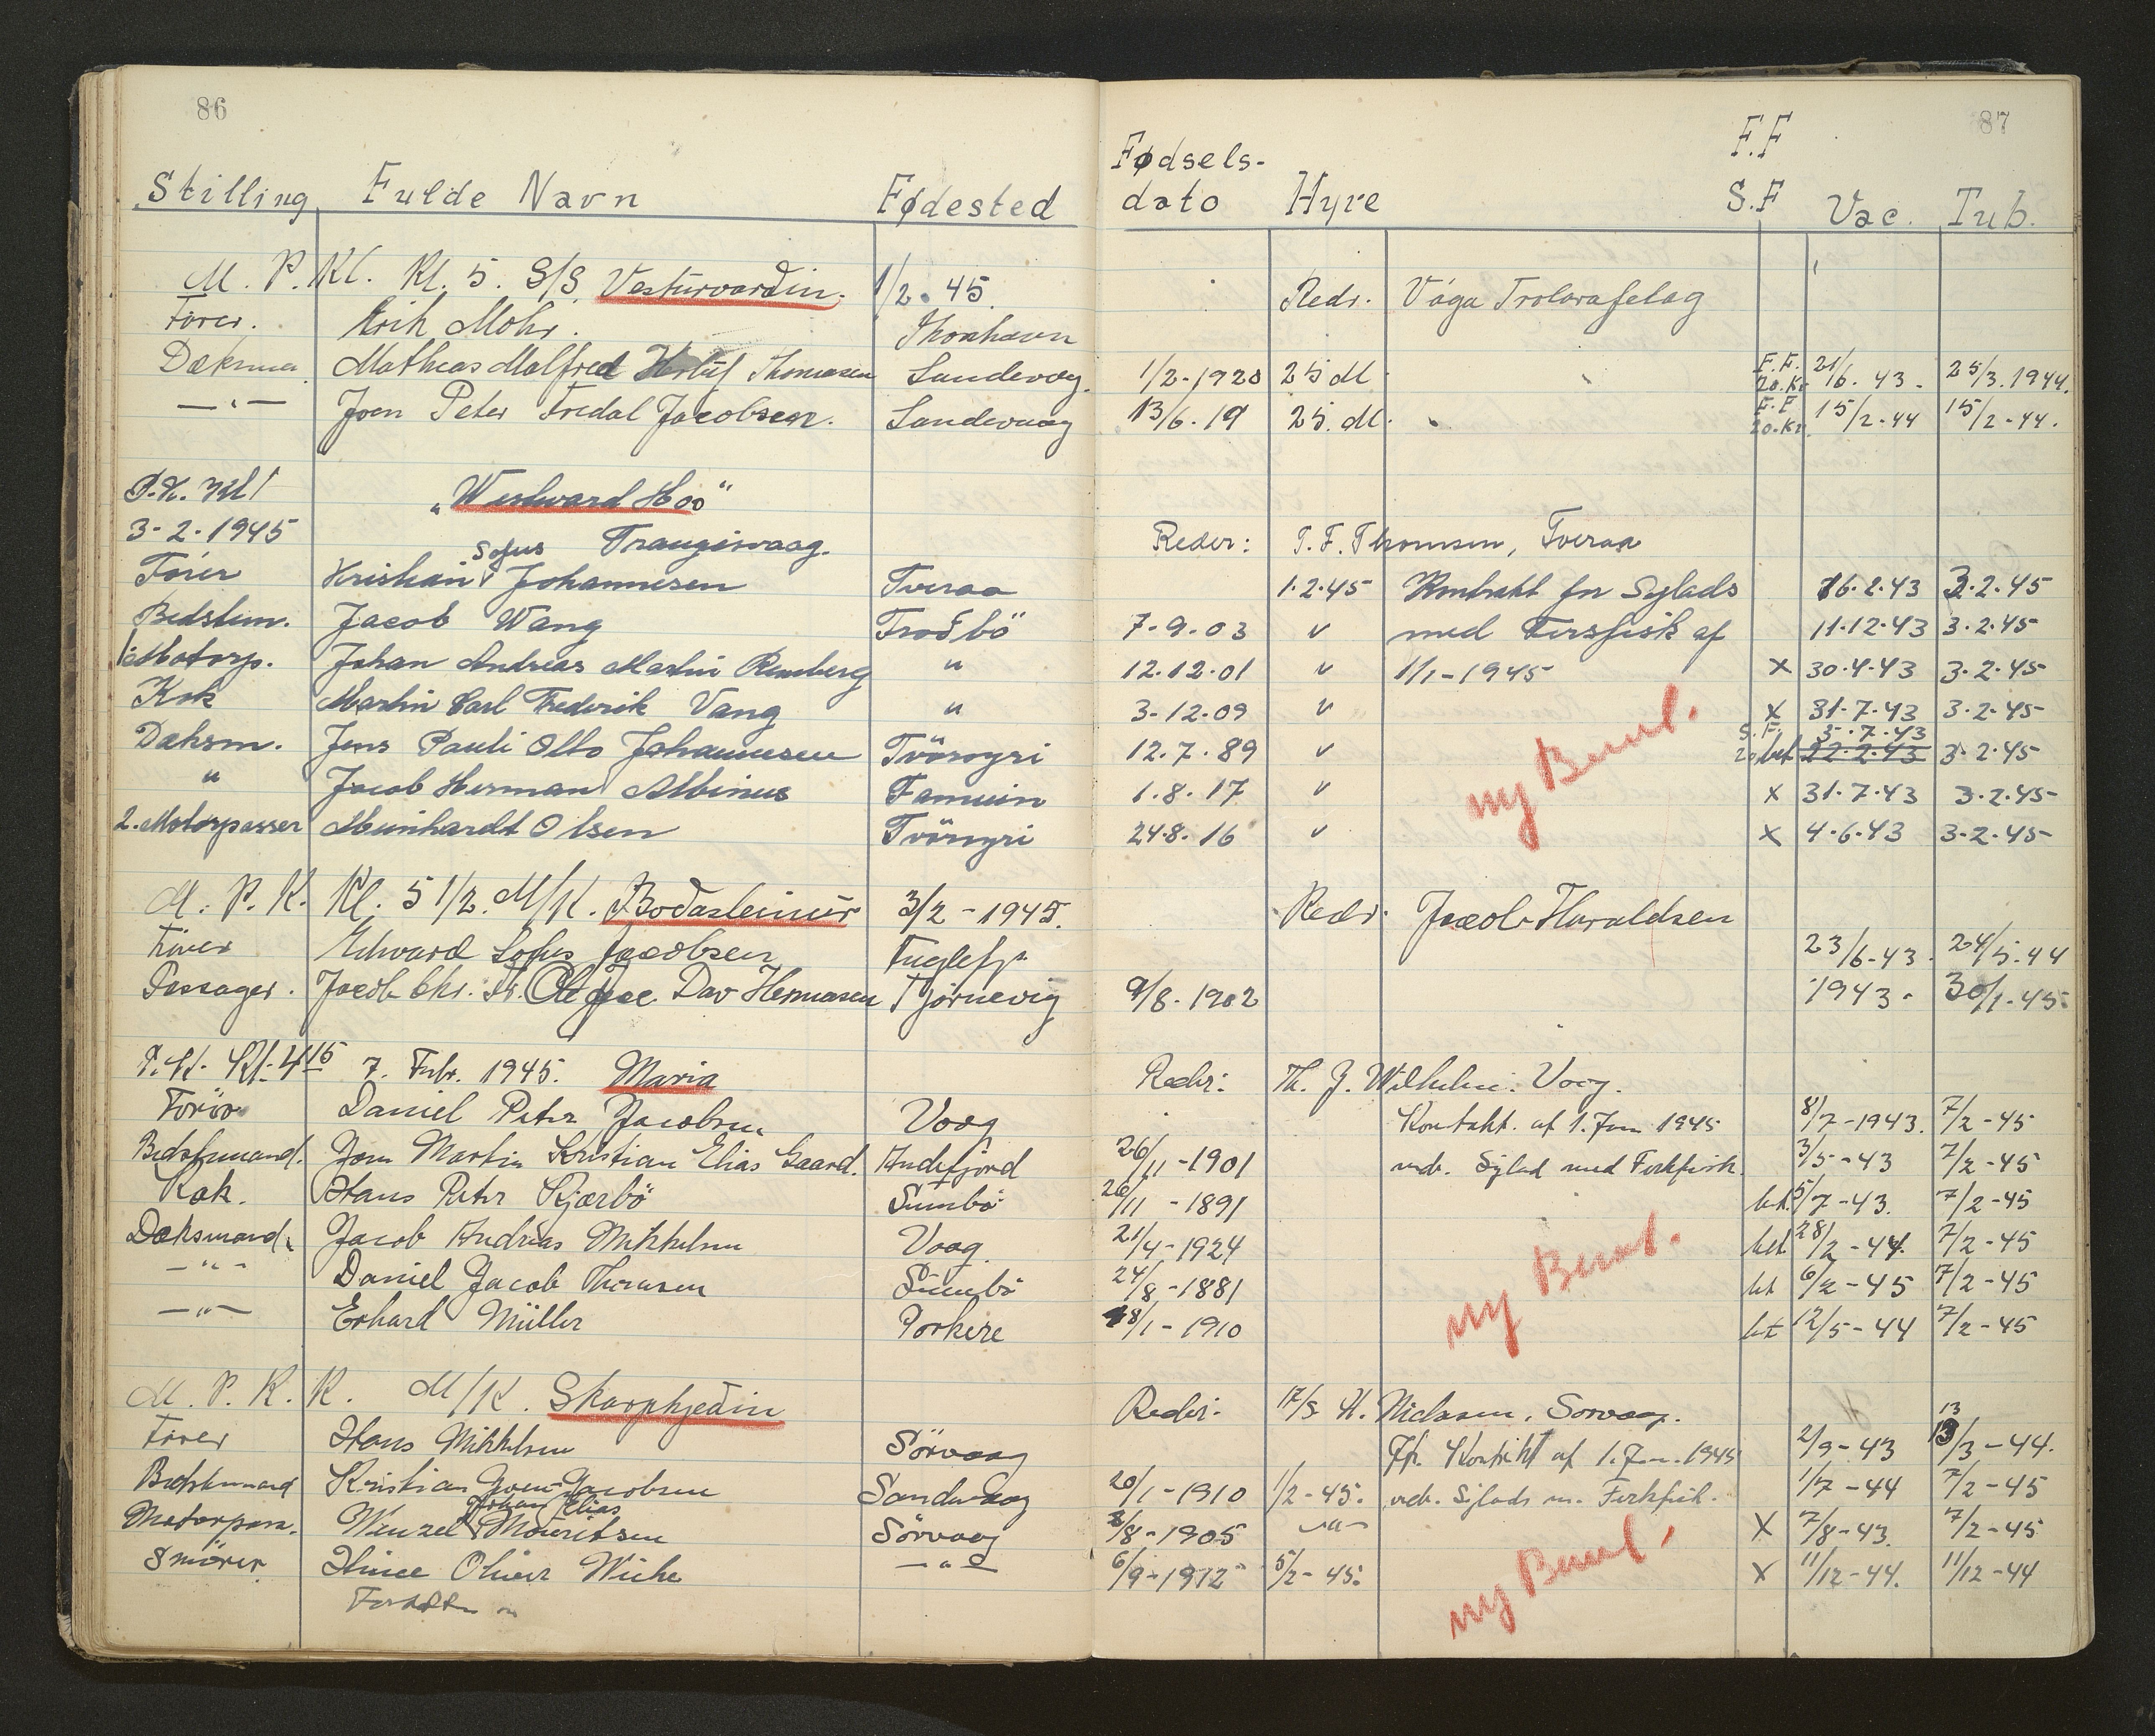 86
87
Stilling Fulde Navn Fødested Fødsels-dato Hyre F.F S.F Vac. Tub.
M. P. Kl. Kl. 5. S/S Vesturvardin. 1/2. 45. Redr. Vága Trolarafelag
Förer. Erik Mohr. Thorshavn
Matheas Malfred Thomasen Sandevog. 1/2-1920 25 dl. F.F. 20.Kr 21/6. 43. 25/3. 1944.
—"— Joen Peter Fredal Jacobsen. Sandevaag 13/6. 19 25. dl. F.F 20.Kr. 15/2-44 15/2-44.
P.K. Kl 1 „Westward Hoo"
3-2-1945 Trangisvaag. Reder: T. F. Thomsen, Tveraa
Förer Kristian Sofus Johannesen Tveraa 1.2.45 Kontrakt for Sejlads 16.2.43 3.2.45
Bedstem. Jacob Wang Frodbö 7-9-03 v med Fersfisk af 11.12.43 3.2.45
1. Motorp. Johan Andreas Martin " 12.12.01 v 1/1-1945 x 30.4.43 3.2.45
Kok Martin Carl Frederik Vang " 3-12-09 v x 31.7.43 3.2.45
Daksm. Jens Pauli Otto Johannesen Tvöroyri 12.7.89 v S.F. 5.7.43 22.2.43 3.2.45
ny Bem.
" Jacob Herman Albinus Famuin 1.8.17 v x 31.7.43 3.2.45
2. Motorpasser Meinhardt Olsen Tvöroyri 24.8.16 v x 4.6.43 3.2.45
M. P. K. Kl. 5 1/2. M/K. Bodasteinur 3/2-1945. Redr. Jacob Haraldsen
Förer Edward Sofus Jacobsen Fuglefj. 23/6-43. 24/5-44
Passager. Jacob Chr. Fr. Ole Jac. Dav Hermansen Tjörnevig 9/8-1902 1943. 30/1-45.
P.K. Kl. 4 15 7. Febr. 1945. Maria Redr: Th. J. Wilhelm. Voag.
Förer Daniel Peter Jacobsen Voag Kontrakt. af 1. Jan 1945 8/7-1943. 7/2-45
Bedstemand. Jon Martin Kristian Elias Gaard. Andefjord 26/11-1901 vedr. Sejlad med Ferkfisk. 3/5-43 7/2-45
Kok. Hans Peter Kjærbö Sumbö 26/11-1891 bet. 5/7-43. 7/2-45
Daksmand. Jacob Andreas Mikkelsen Voag 21/4-1924 bet 28/2-44. 7/2-45
—"— Daniel Jacob Thomsen Sumbö 24/8-1881 bet 6/2-45 7/2-45
ny Bem.
—"— Erhard Müller Porkere 18/1-1910 bet 12/5-44 7/2-45
M. P. K. K. M/K. Skarphjedin Reder. H. Niclasen. Sorvaag.
Förer Hans Mikkelsen Sörvaag Kontrakt af 1. Jan. 1945 2/9-43 13 13/3-44.
Bedstemand Kristian Joen Jacobsen Sandevaag 20/1-1910 1/2-45. vedr. Sejlads m. Ferkfisk. 1/7-44 7/2-45
Motorpass. Wenzel Johan Elias Mouritsen Sörvaag 2/8-1905 —"— X 7/8-43. 7/2-45
Smörer. Oliver Sörvaag —"— 6/9-1912 5/2-45. X 11/12-44. 11/12-44
ny Bem.